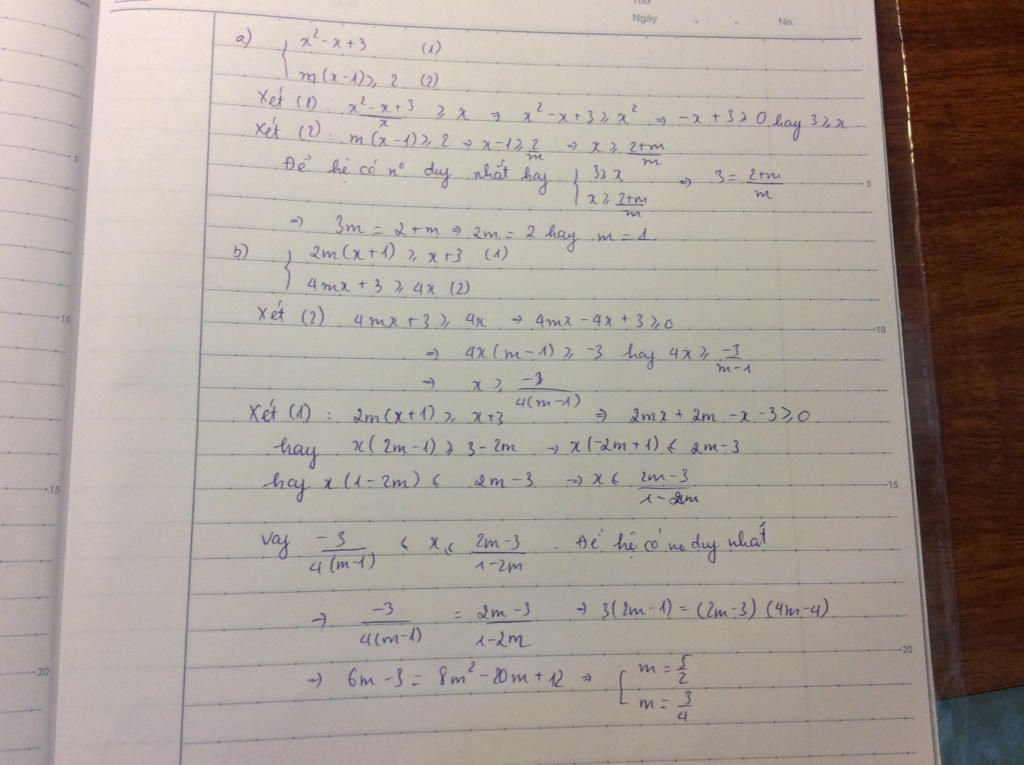 Thứ
Ngày . . No.
a) { x² - x + 3 (1)
m(x-1) ≥ 2 (2)
Xét (1): (x² - x + 3)/x ≥ x → x² - x + 3 ≥ x² → -x + 3 ≥ 0 hay 3 ≥ x
Xét (2): m(x-1) ≥ 2 → x-1 ≥ 2/m → x ≥ (2+m)/m
Để hệ có nº duy nhất hay { 3 ≥ x
x ≥ (2+m)/m → 3 = (2+m)/m
→ 3m = 2+m → 2m = 2 hay m = 1.
b) { 2m(x+1) ≥ x+3 (1)
4mx + 3 ≥ 4x (2)
Xét (2) 4mx + 3 ≥ 4x → 4mx - 4x + 3 ≥ 0
→ 4x(m-1) ≥ -3 hay 4x ≥ -3/(m-1)
→ x ≥ -3/(4(m-1))
Xét (1): 2m(x+1) ≥ x+3 → 2mx + 2m - x - 3 ≥ 0
hay x(2m-1) ≥ 3-2m → x(-2m+1) ≤ 2m-3
hay x.(1-2m) ≤ 2m-3 → x ≤ (2m-3)/(1-2m)
Vậy -3/(4(m-1)) ≤ x ≤ (2m-3)/(1-2m) . Để hệ có no duy nhất
→ -3/(4(m-1)) = (2m-3)/(1-2m) → 3(2m-1) = (2m-3)(4m-4)
→ 6m-3 = 8m² - 20m + 12 → [ m = 5/2
m = 3/4
5
10
15
20
5
10
15
20